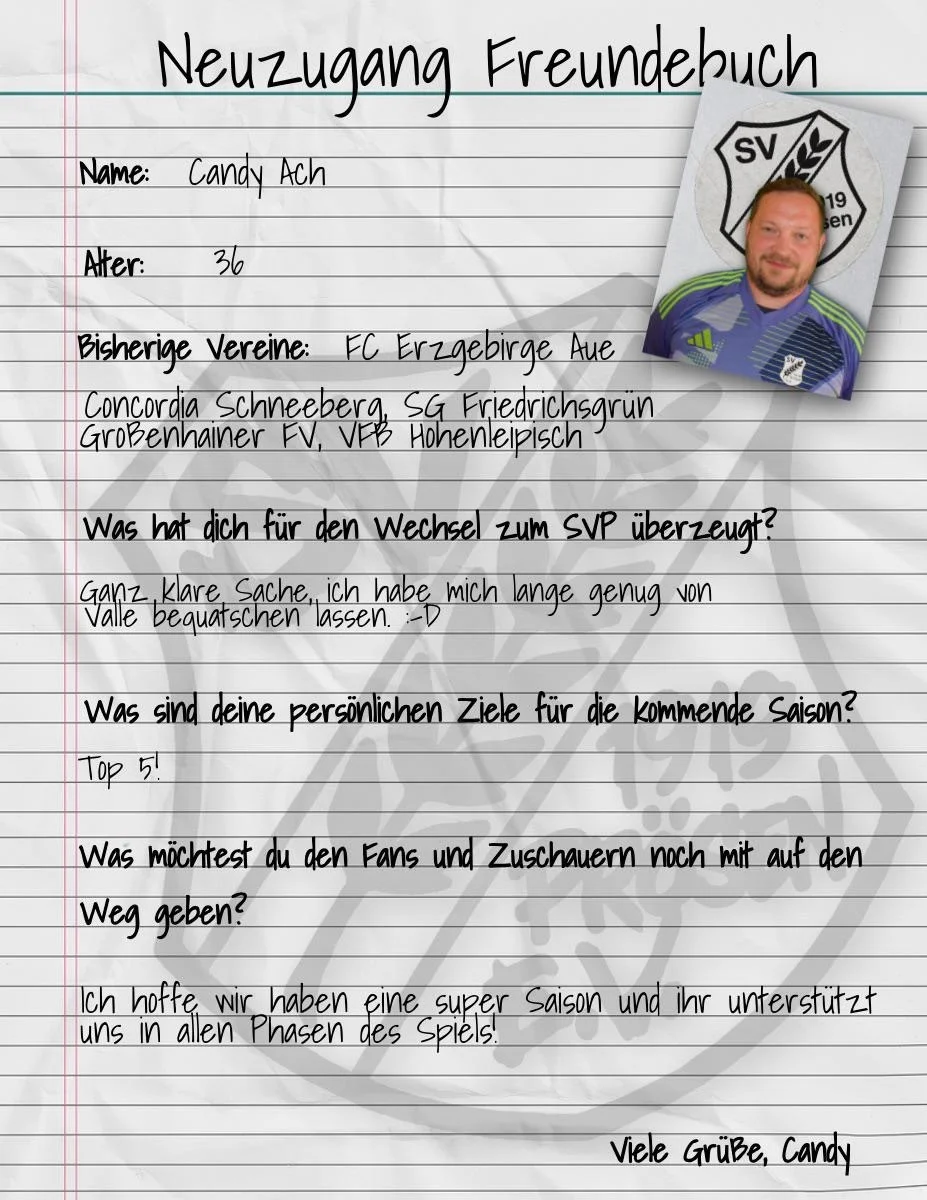 Neuzugang Freundebuch
SV
19
sen
Name: Candy Ach
Alter: 36
Bisherige Vereine: FC Erzgebirge Aue
SV
Concordia Schneeberg, SG Friedrichsgrün
Großenhainer FV, VFB Hohenleipisch
Was hat dich für den Wechsel zum SVP überzeugt?
Ganz klare Sache, ich habe mich lange genug von
Valle bequatschen lassen. :-D
Was sind deine persönlichen Ziele für die kommende Saison?
Top 5!
Was möchtest du den Fans und Zuschauern noch mit auf den
Weg geben?
Ich hoffe wir haben eine super Saison und ihr unterstützt
uns in allen Phasen des Spiels!
Viele Grüße, Candy
SV
1919
PRÖSEN
E.V.